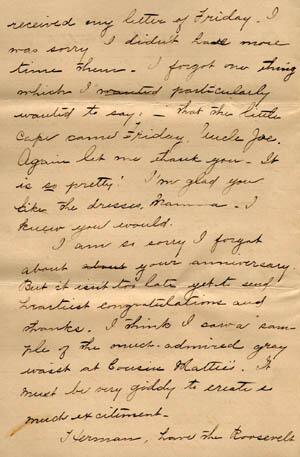 received my letter of Friday. I
was sorry I didn't have more
time then. I forgot one thing
which I wanted particularly
wanted to say; - that the little
cape came Friday, Uncle Joe.
Again let me thank you. It
is so pretty! I'm glad you
like the dresses, Mamma. I
knew you would.
I am so sorry I forgot
about about your anniversary.
But it isn't too late yet to send
heartiest congratulations and
thanks. I think I saw a sam-
ple of the much-admired gray
waist at Cousin Mattie's. It
must be very giddy to create so
much excitement.
Herman, have the Roosevelt